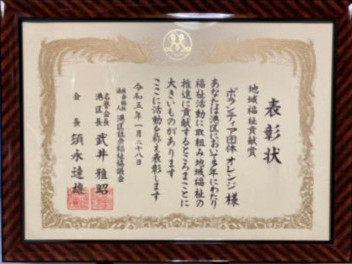 表彰状
地域福祉貢献賞
ボランティア団体 オレンジ 様
あなたは港区において多年にわたり
福祉活動に取組み地域福祉の
推進に貢献するところまことに
大きいものがあります
ここに活動を称え表彰します
令和五年一月二十八日
社会福祉法人 港区社会福祉協議会
名誉会長
港区長 武井雅昭
会長 須永達雄